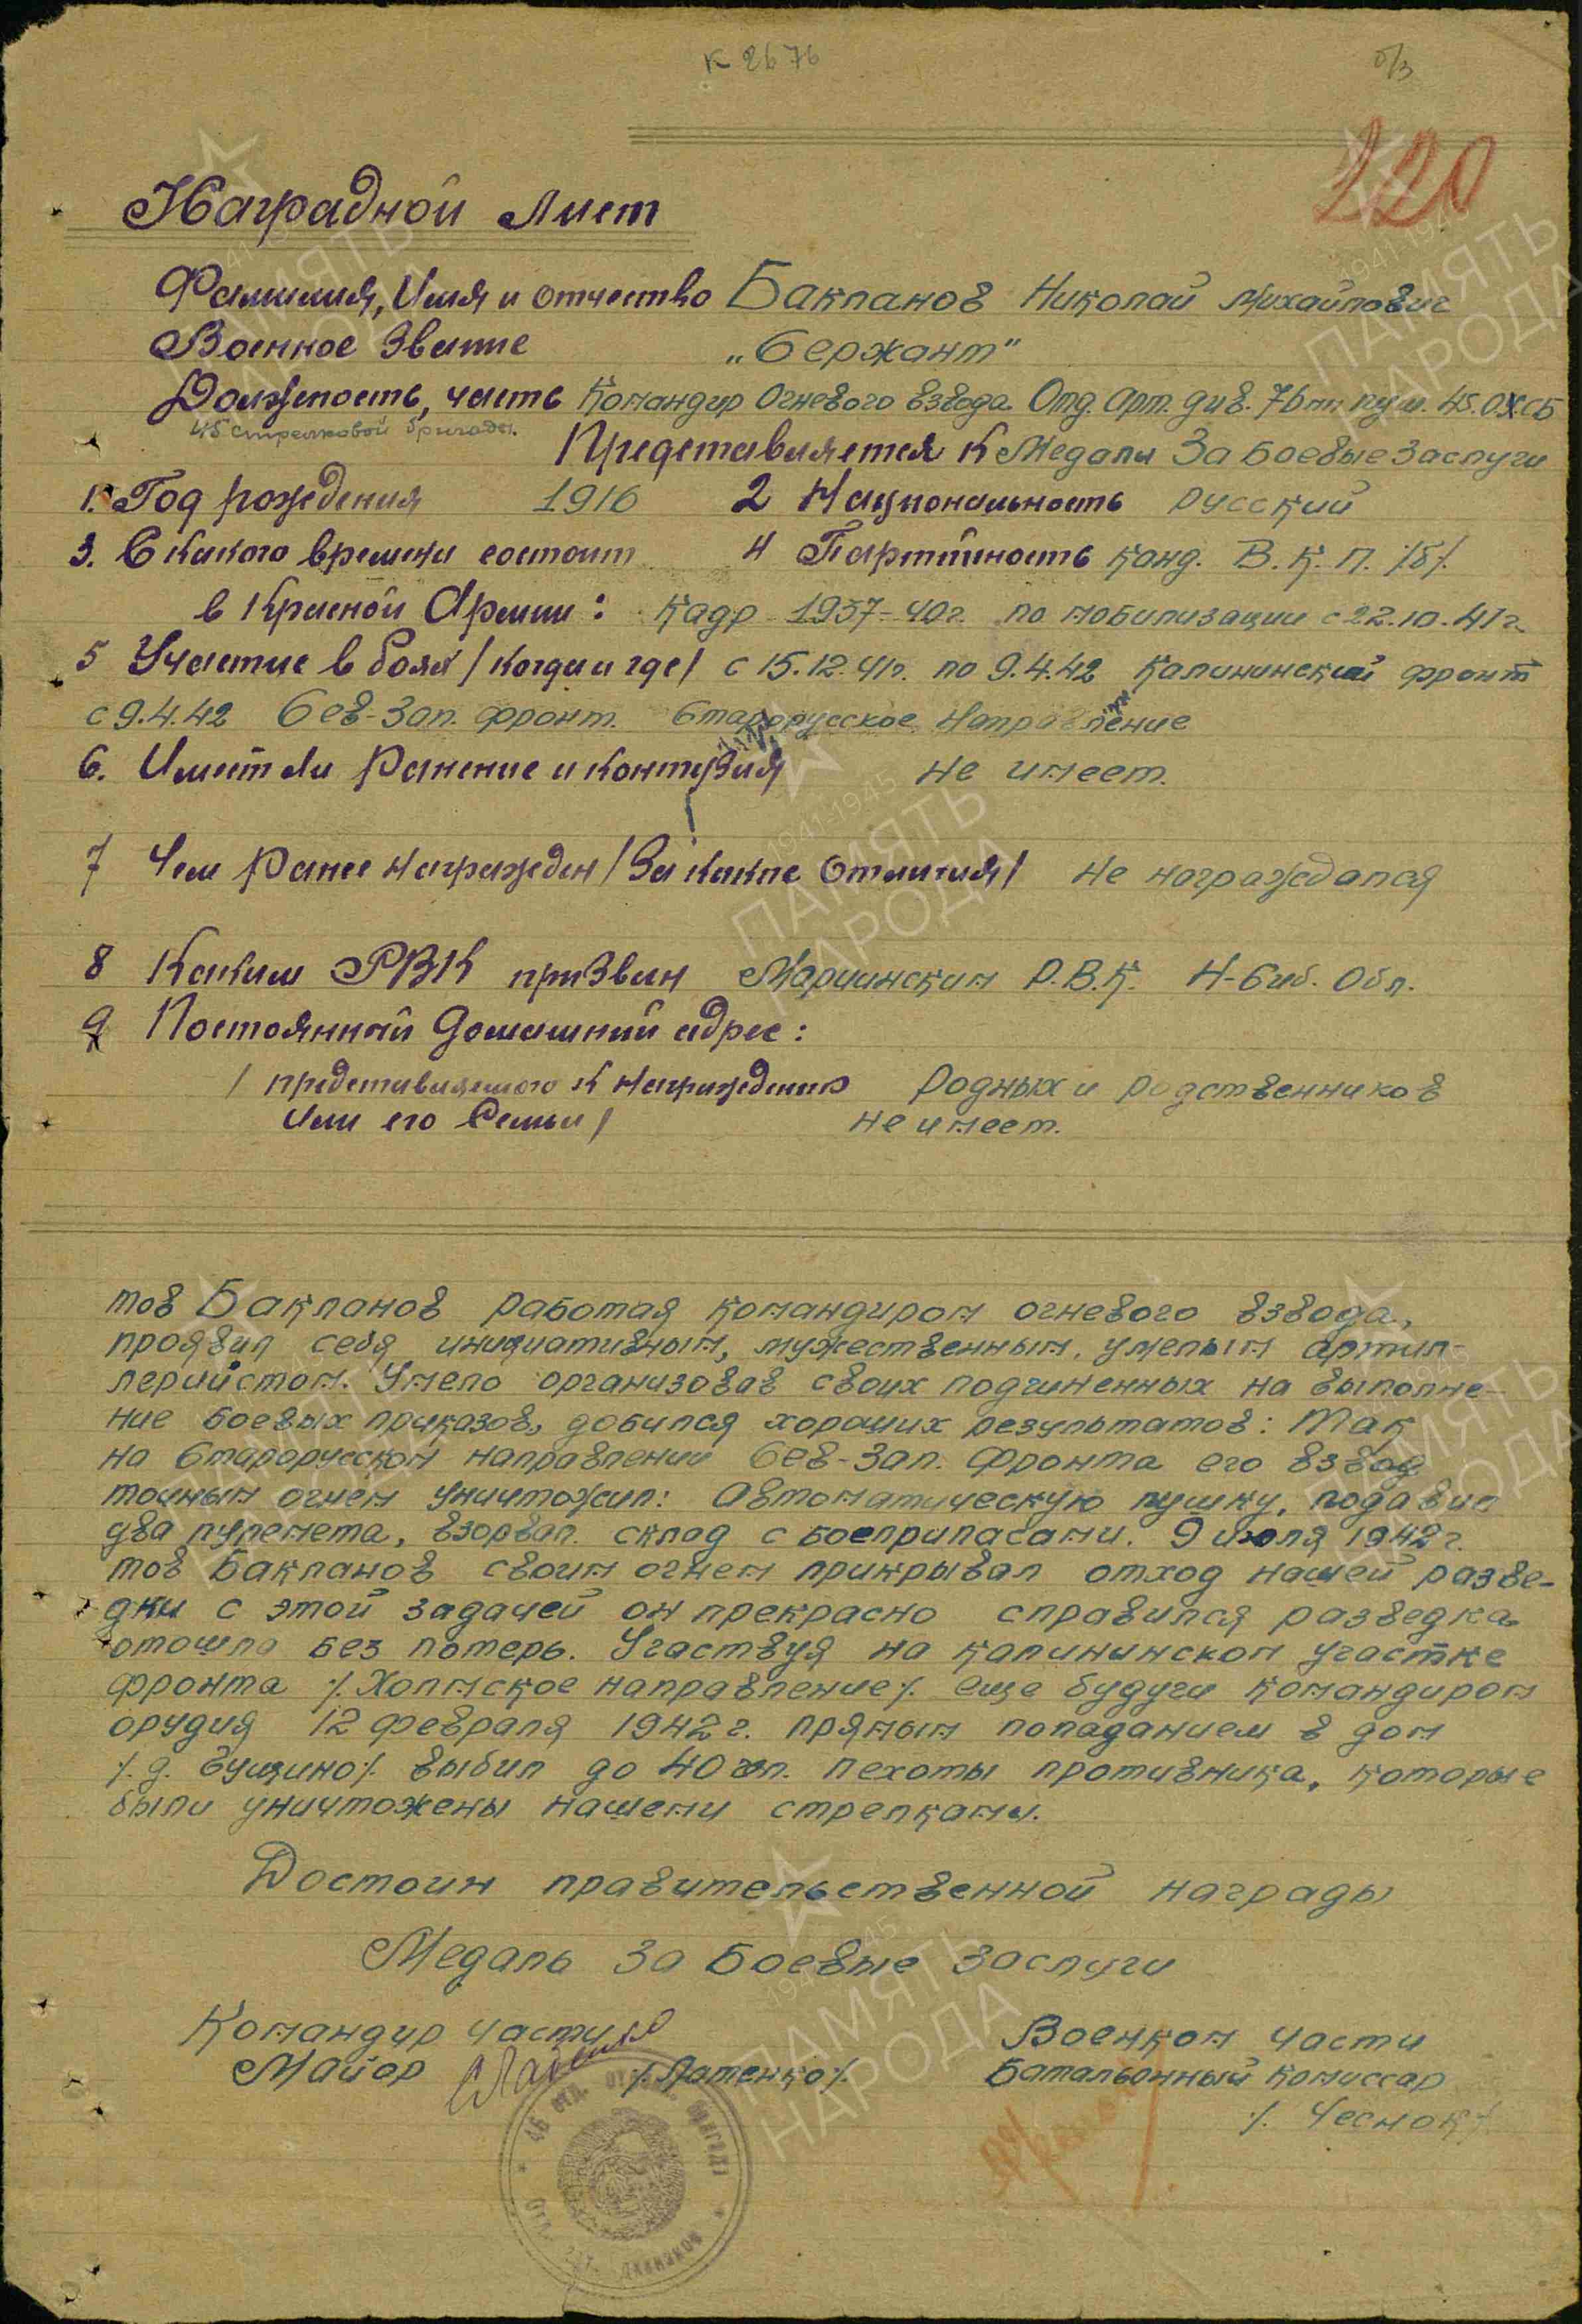 К 2676
б/з
220
Наградной Лист
Фамилия, Имя и отчество Бакланов Николай Михайлович
Военное Звание „Сержант"
Должность, часть Командир Огневого взвода Отд. Арт. див. 76мм пуш. 45. ОХСБ
45 стрелковой бригады.
Представляется к Медали За Боевые Заслуги
1. Год рождения 1916 2 Национальность русский
3. С какого времени состоит 4 Партийность канд. В.К.П. /б/.
в Красной Армии: кадр 1937-40г. по мобилизации с 22.10.41г.
5 Участие в боях /когда и где/ с 15.12.41г. по 9.4.42 Калининский фронт
с 9.4.42 Сев-Зап. фронт. Старорусское направление
6. Имеет ли Ранение и контузия не имеет.
7 Чем Ранее награжден /За какие отличия/ не награждался
8 Каким РВК призван Мариинским Р.В.К. Н-Сиб. Обл.
9 Постоянный Домашний адрес:
/ представляемого к награждению родных и родственников
Или его Семьи/ не имеет.
тов Бакланов работая командиром огневого взвода,
проявил себя инициативным, мужественным, умелым артил-
лерийстом. Умело организовав своих подчиненных на выполне-
ние боевых приказов, добился хороших результатов: Так
на Старорусском направлении Сев-Зап. Фронта его взвод
точным огнем уничтожил: Автоматическую пушку, подавил
два пулемета, взорвал склад с боеприпасами. 9 июля 1942г.
тов Бакланов своим огнем прикрывал отход нашей разве-
дки с этой задачей он прекрасно справился разведка
отошла без потерь. Участвуя на калининском участке
фронта /. Холмское направление/. еще будучи командиром
орудия 12 февраля 1942г. прямым попаданием в дом
/. д. Бущино/. выбил до 40 чел. пехоты противника, которые
были уничтожены нашеми стрелками.
Достоин правительственной награды
Медаль За Боевые Заслуги
Командир части Военком части
Майор /. Латенко/. Батальонный комиссар
/. Чеснок/.
ПАМЯТЬ
НАРОДА
1941-1945